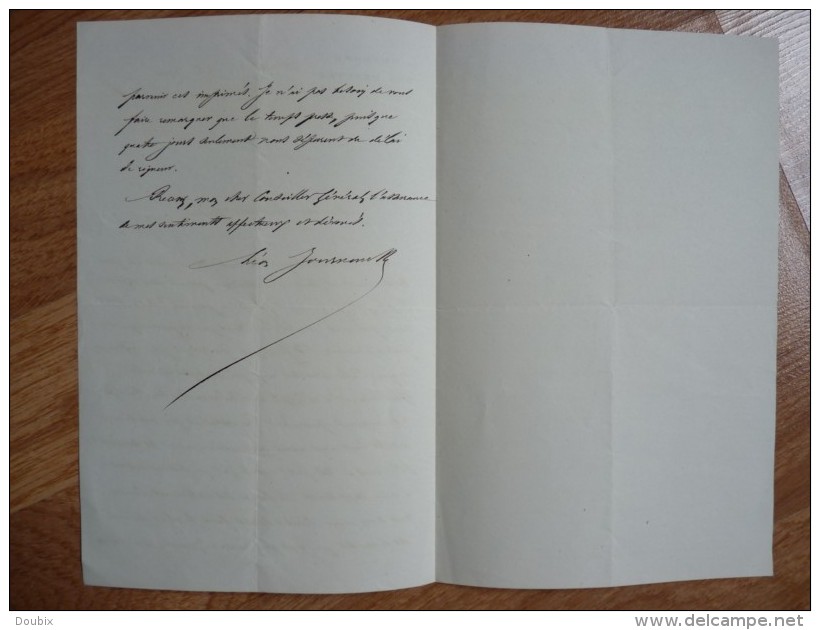 parvenir ces imprimés. Je n'ai pas besoin de vous
faire remarquer que le temps presse, puisque
quatre jours seulement nous séparent du délai
de rigueur.
Recevez, mon cher Conseiller Général, l'assurance
de mes sentiments affectueux et dévoués.
Léon
Doubix
delcampe.net